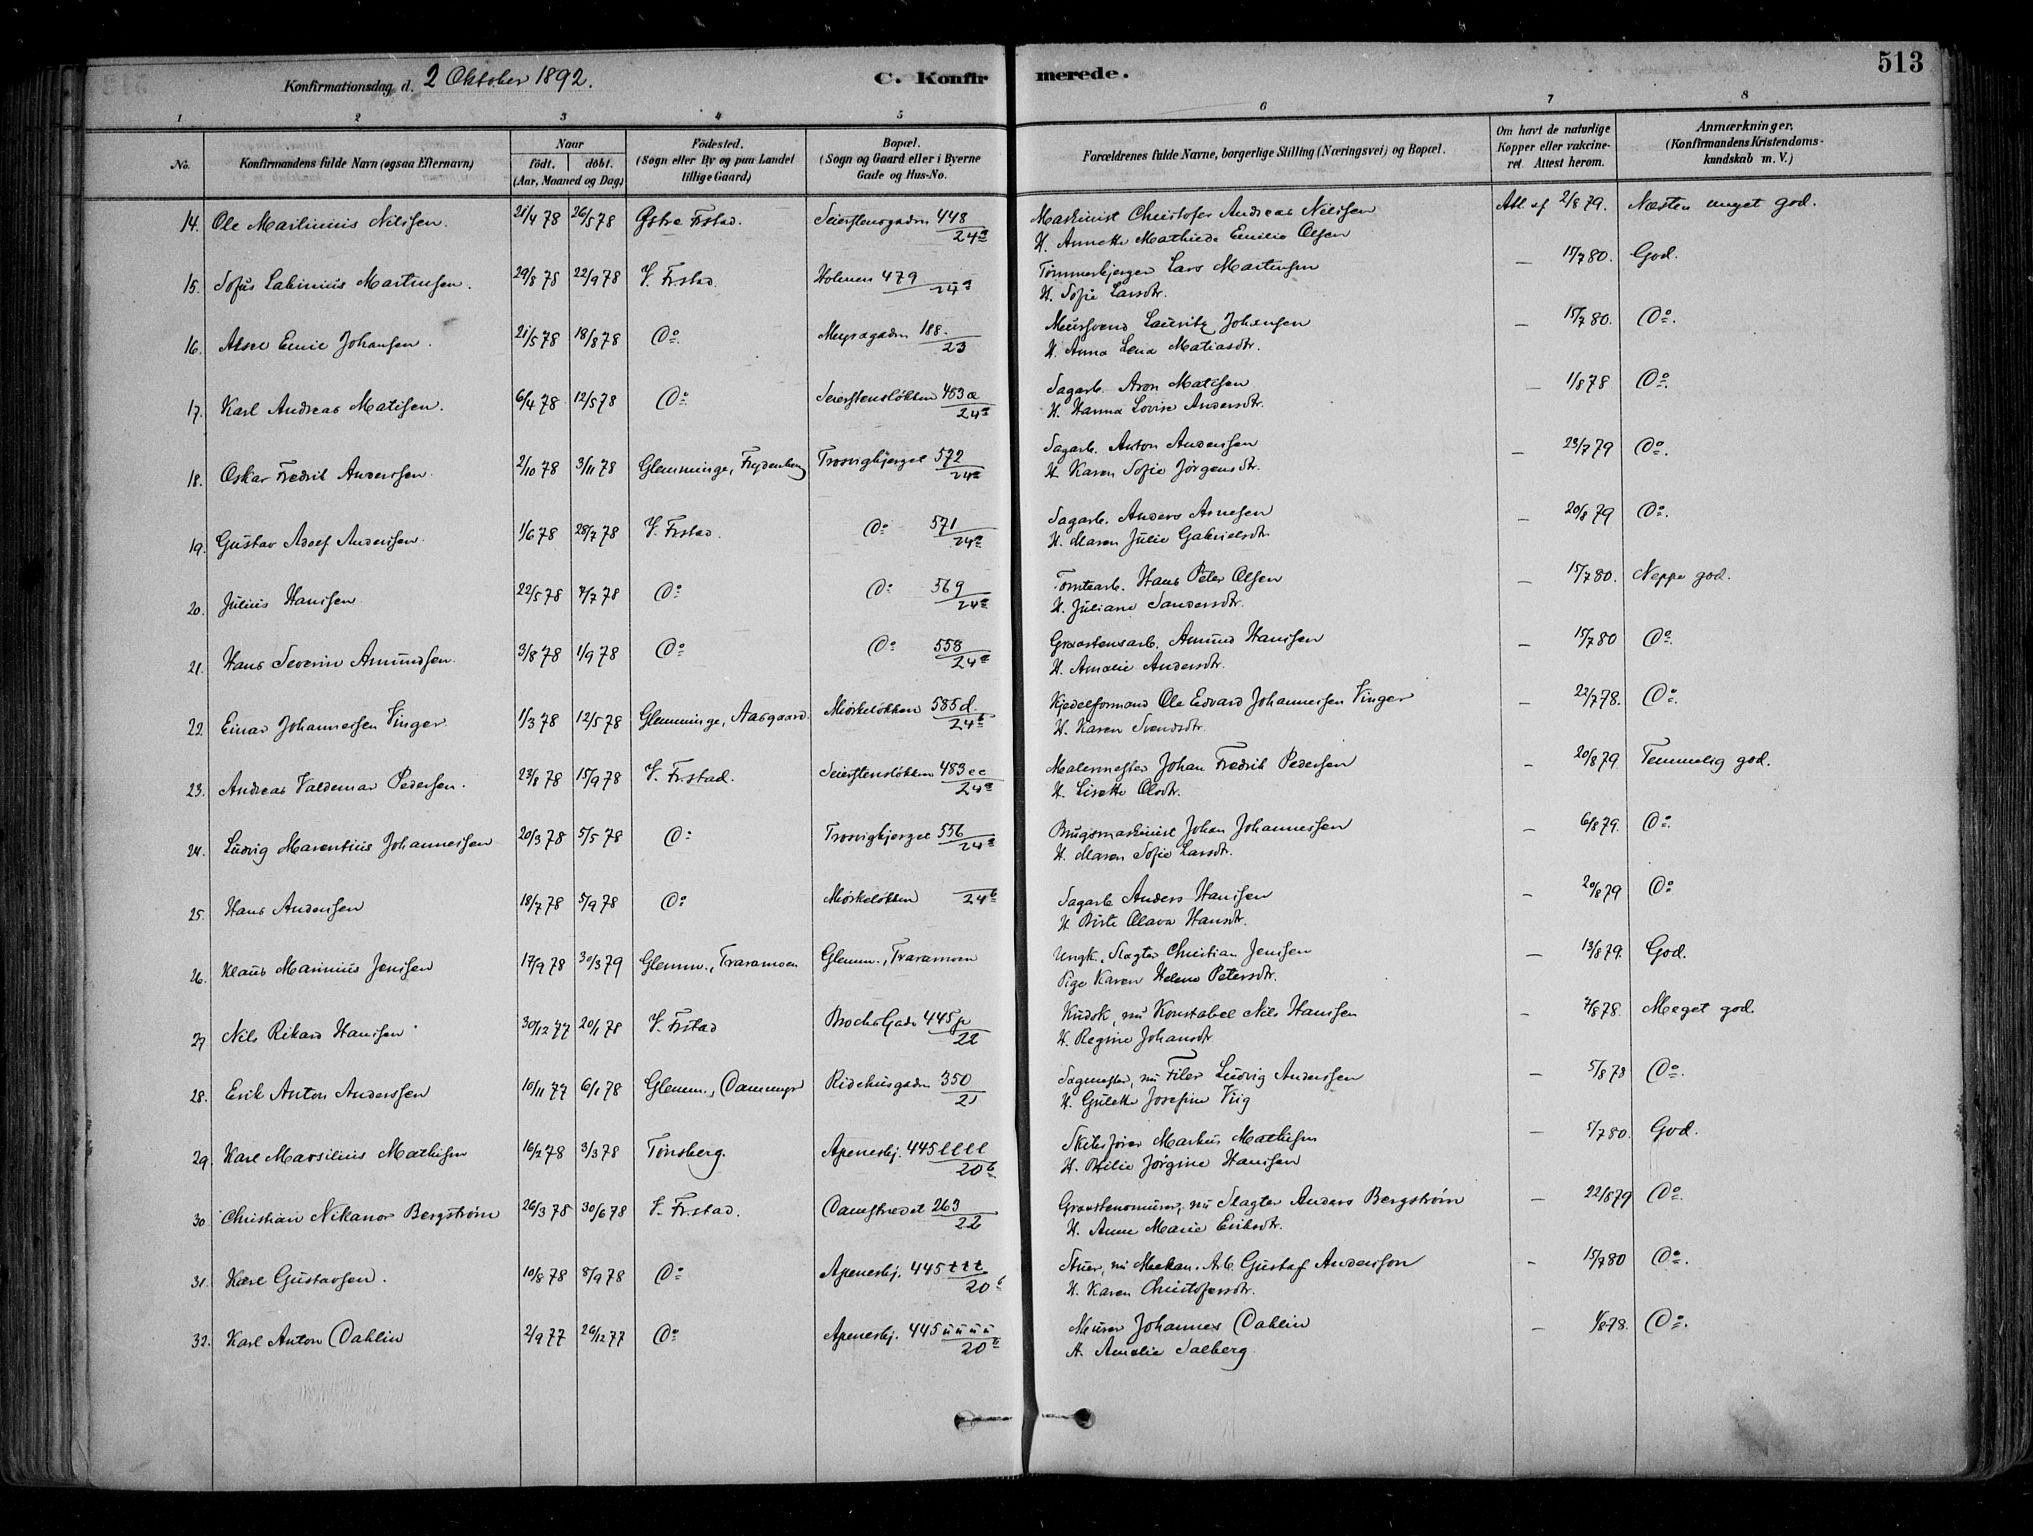 Konfirmationsdag d. 2 Oktober 1892.
C. Konfirmerede.
513
1 2 3 4 5 6 7 8
No. Konfirmandens fulde Navn (ogsaa Efternavn) Naar födt. döbt. (Aar, Maaned og Dag) Födested. (Sogn eller By og paa Landet tillige Gaard) Bopæl. (Sogn og Gaard eller i Byerne Gade og Hus-No. Forældrenes fulde Navne, borgerlige Stilling (Næringsvei) og Bopæl. Om havt de naturlige Kopper eller vakcineret. Attest herom. Anmærkninger. (Konfirmandens Kristendomskundskab m. V.)
14. Ole Martinius Nilssen. 21/4 78 26/5 78 Østre Frstad. 448/24a Maskinist Christofer Andreas Nilssen 2/8 79. Næsten meget god.
H. Annette Mathilde Emilie Olsen
15. Sofus Labinius Martinsen. 29/8 78 22/9 78 V. Frstad. Holmen 479/24a Tømmerbjerger Lars Martinsen — 15/7 80. God.
H. Sofie Larsdtr.
16. Emil Johansen. 21/5 78 18/8 78 Do. 188/23 Mursvend Lauritz Johansen — 15/7 80. Do.
H. Anna Lena Matiasdtr.
17. Karl Andreas Matisen. 6/4 78 12/5 78 Do Seierstensløkken 483a/24a Sagarb. Aron Matisen — 1/8 78 Do.
H. Hanna Lovise Andersdtr.
18. Oskar Fredrik Anderssen. 2/10 78 3/11 78 Glemminge, Frydenberg Trosvigbjerget 572/24a Sagarb. Anton Anderssen — 23/7 79 Do.
H. Karen Sofie Jørgensdtr.
19. Gustav Adolf Anderssen. 1/6 78 28/7 78 V. Frstad. Do 571/24a Sagarb. Anders Arnesen — 20/8 79 Do.
H. Maren Julie Gabrielsdtr.
20. Julius Hanssen 22/5 78 7/7 78 Do Do 569/24a Tomtearb. Hans Peter Olsen — 15/7 80. Neppe god.
H. Juliane Sandersdtr.
21. Hans Severin Amundsen. 3/8 78 1/9 78 Do Do 558/24a Graastensarb. Amund Hanssen — 15/7 80 Do.
H. Amalie Andersdtr.
22. Einar Johannessen Vinger 1/3 78 12/5 78 Glemminge, Aasgaard. Mørkeløkken 585d./24b Kjedelformand Ole Edvard Johannessen Vinger — 22/7 78. Do.
H. Karen Svendsdtr.
23. Andreas Valdemar Pedersen. 23/8 78 15/9 78 V. Frstad. Seierstensløkken 483cc/24a Malermester Johan Fredrik Pedersen — 20/8 79. Temmelig god.
H. Lisette Olsdtr.
24. Ludvig Marentius Johannessen 20/3 78 5/5 78 Do Trosvigbjerget 556/24a Brugsmaskinist Johan Johannessen — 6/8 79. Do.
H. Maren Sofie Larsdtr.
25. Hans Anderssen 18/7 78 5/9 78 Do Mørkeløkken 24b Sagarb Anders Hanssen — 20/8 79 Do
H. Birte Olava Hansdtr.
26. Klaus Marinius Jenssen 17/9 78 30/3 79 Glemm., Traramoen Glemm., Traramoen Ungk., Slagter Christian Jenssen — 13/8 79. God.
Pige Karen Helene Petersdtr.
27. Nils Rikard Hanssen 30/12 77 20/1 78 V. Frstad Brochs Gade 445p/22 Kudsk, nu Konstabel Nils Hanssen — 7/8 78. Meget god.
H. Regine Johansdtr.
28. Erik Anton Anderssen 10/11 77 6/1 78 Glemm., Dammyr Ridehusgaden 350/21 Sagmester, nu Filer Ludvig Anderssen — 5/8 78 Do.
H. Gulette Josefine Viig
29. Karl Marsilius Mathisen 16/2 78 3/3 78 Tønsberg. Apenesbj. 445llll/20b Skibsfører Markus Mathisen — 5/7 80. God.
H. Jørgine Hanssen
30. Christian Nikanor Bergstrøm 26/3 78 30/6 78 V. Frstad. Damstredet 263/22 Graastensmurer, nu Slagter Anders Bergstrøm — 22/8 79 Do.
H. Anne Marie Eriksdtr.
31. Karl Gustavsen. 10/8 78 8/9 78 Do Apenesbj. 445ttt/20b Stuer, nu Mekan. Arb. Gustaf Andersson — 15/7 80 Do.
H. Karen Christofersdtr.
32. Karl Anton Dahlin 2/9 77 26/12 77 Do Apenesbj. 445uuuu/20b Murer Johannes Dahlin — 1/8 78. Do.
H. Amalie Salberg